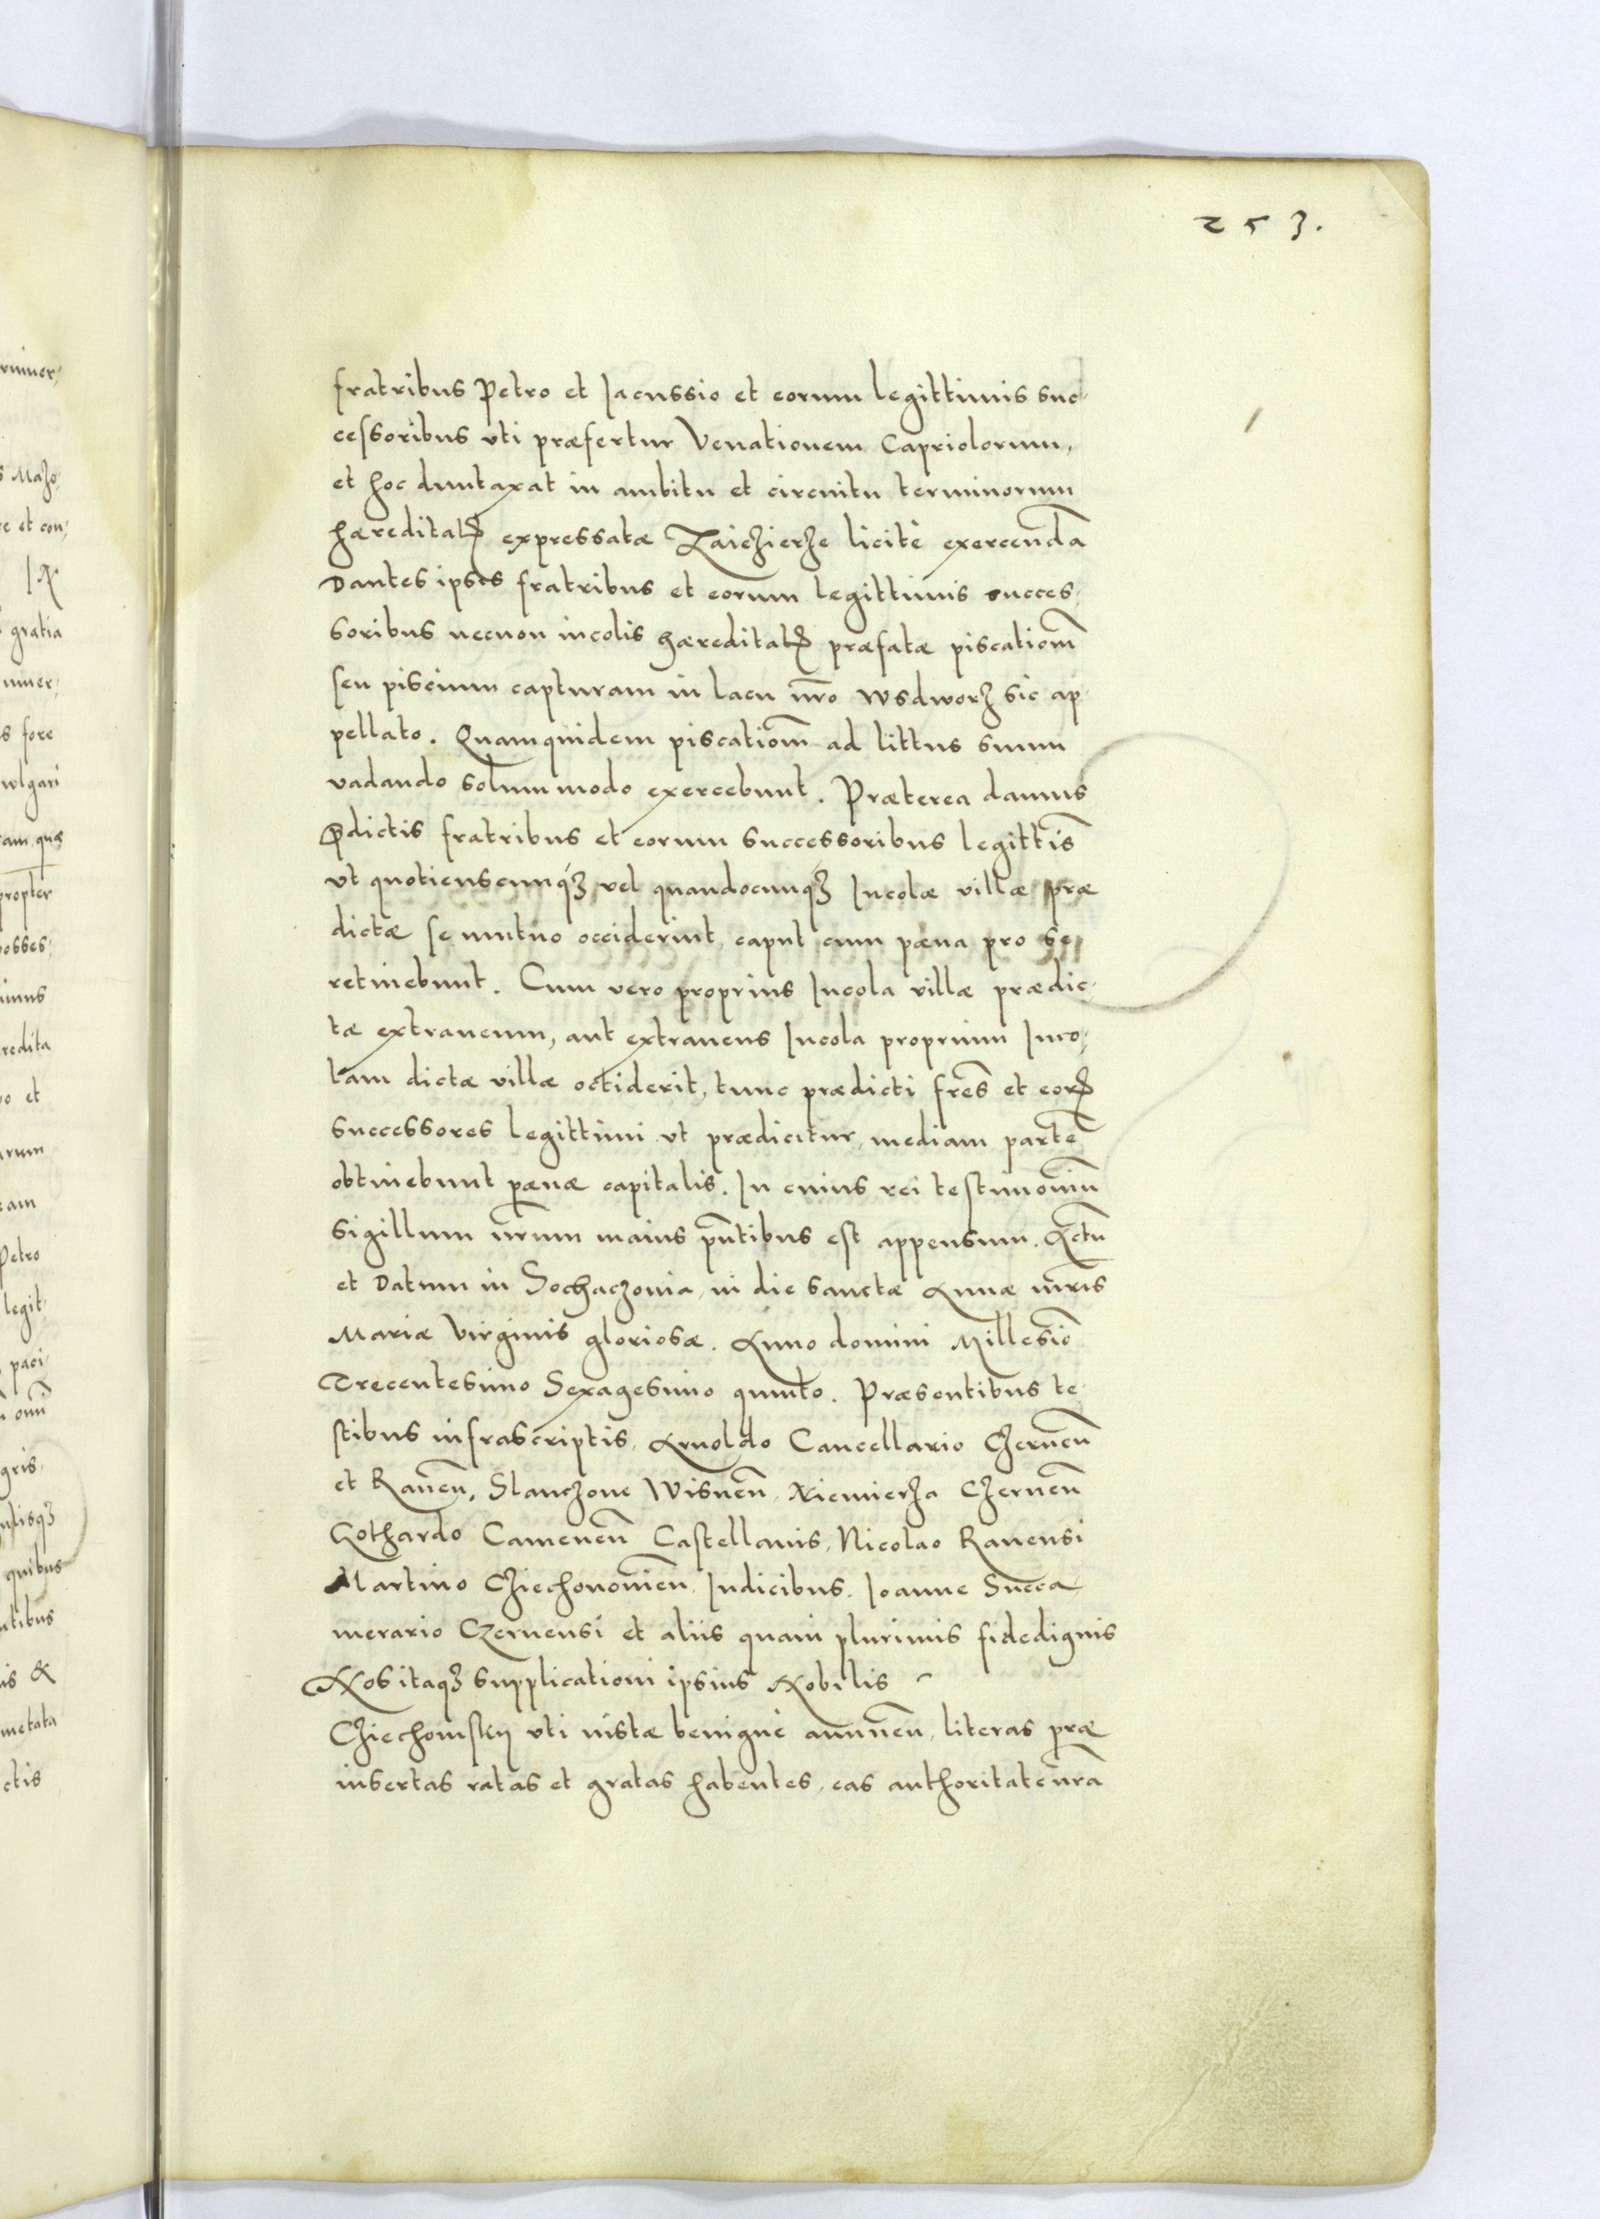 253.
fratribus Petro et Jacussio et eorum legittimis suc-
cessoribus uti præfertur Venationem Capriolorum,
et hoc duntaxat in ambitu et circuitu terminorum
hæreditatꝭ expressatæ Zaiczierze licitè exercendã
Dantes ipsis fratribus et eorum legittimis succes-
soribus necnon incolis hæreditatꝭ præfatæ piscatiom̃
seu piscium capturam in lacu nr̃o Wsdworz sic ap-
pellato. Quamquidem piscatiom̃ ad littus suum
vadando solummodo exercebunt. Præterea damus
p̃dictis fratribus et eorum successoribus legittis̃
ut quotienscunqꝫ vel quandocunqꝫ Incolæ villæ præ
dictæ se mutuo occiderint, caput cum pæna pro se
retinebunt. Cum vero proprius Incola villæ prædic-
tæ extraneum, aut extraneus Incola proprium Inco-
lam dictæ villæ occiderit, tunc prædicti fres̃ et eorꝝ
successores legittimi ut prædicitur, mediam parte͂
obtinebunt pænæ capitalis. In cuius rei testimoniũ
sigillum nr̃um maius pñtibus est appensum. Actũ
et Datum in Sochaczovia, in die sanctæ Annæ mr̃is
Mariæ Virginis gloriosæ. Anno domini Millesio͂
Trecentesimo Sexagesimo quinto. Præsentibus te-
stibus infrascriptis, Arnoldo Cancellario Czerneñ
et Raveñ, Slanczone Wisneñ, Niemierza Czerneñ
Gothardo Cameneñ Castellanis, Nicolao Ravensi
Martino Cziechonovieñ Iudicibus. Ioanne Succa-
merario Czernensi et aliis quam plurimis fidedignis
Nos itaqꝫ supplicationi ipsius Nobilis
Cziechomsky uti iustæ benignè annueñ, literas præ
insertas ratas et gratas habentes, eas authoritate nr̃a